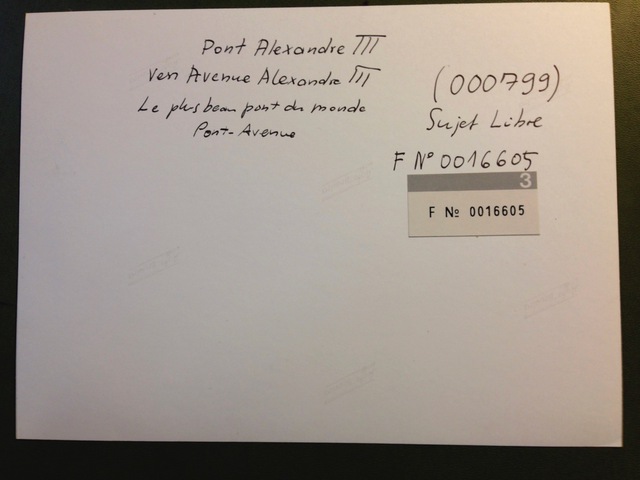 Pont Alexandre III
vers Avenue Alexandre III
Le plus beau pont du monde
Pont-Avenue
(000799)
Sujet Libre
F N° 0016605
3
F № 0016605